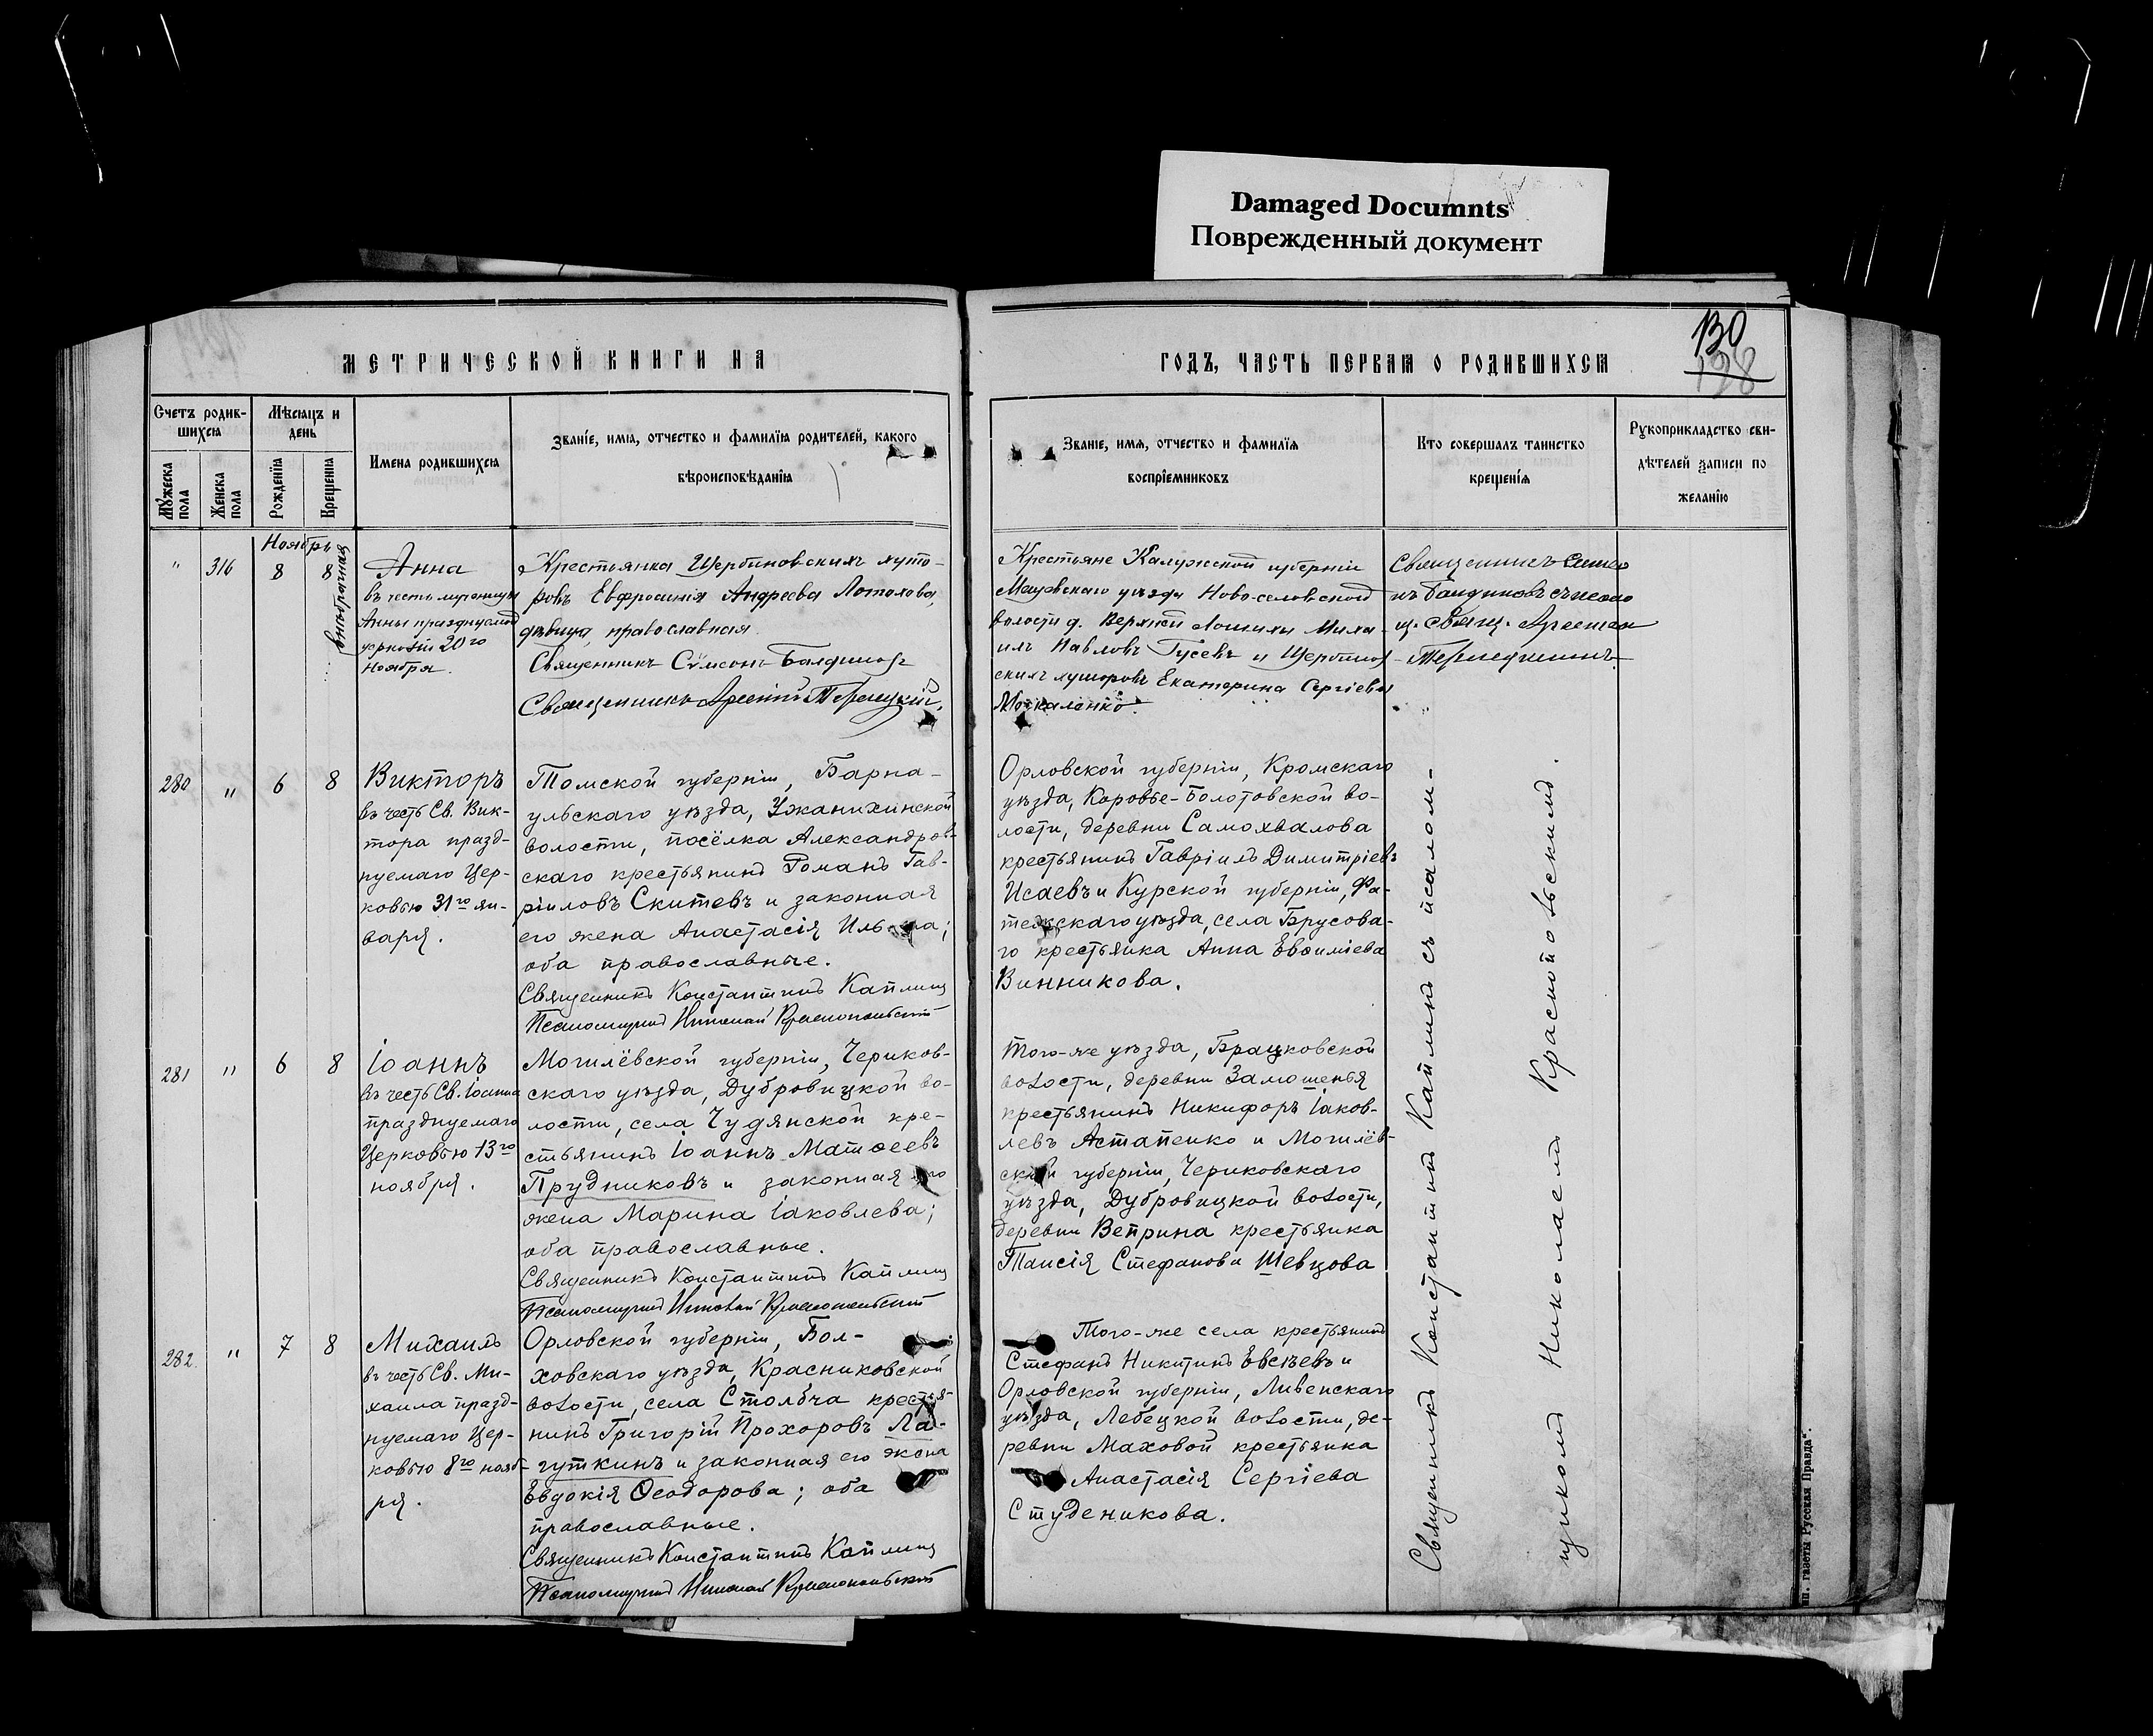 Damaged Documnts
Поврежденный документ
130
138
МЕТРИЧЕСКОЙ КНИГИ НА
ГОДЪ, ЧАСТЬ ПЕРВАЯ О РОДИВШИХСЯ
Счетъ родив-
шихся
Мѣсяцъ и
день
Имена родившихся
Званіе, имя, отчество и фамилія родителей, какого
вѣроисповѣданія
Званіе, имя, отчество и фамилія
воспріемниковъ
Кто совершалъ таинство
крещенія
Рукоприкладство сви-
дѣтелей записи по
желанію
Мужеска
пола
Женска
пола
Рожденія
Крещенія
Ноябрь
" 316 8 8
внѣбрачная
Анна
въ честь мученицы
Анны празднуемой
церковію 20го
ноября.
Крестьянка Щербиновскихъ хуто-
ровъ Евфросинія Андреева Потолова,
дѣвица, православная.
Священникъ Сѵмеонъ
Священникъ Арсеній
Крестьяне Калужской губерніи
Мещовскаго уѣзда Ново-селовской
волости д. Верхней Миха-
илъ Павловъ Гусевъ и Щербинов-
скихъ хуторовъ Екатерина Сергіева
Москаленко.
Священникъ
280 " 6 8
Викторъ
въ честь Св. Вик-
тора празд-
нуемаго Цер-
ковью 31го ян-
варя.
Томской губерніи, Барна-
ульскаго уѣзда, Ужанихинской
волости, посёлка Александров-
скаго крестьянинъ Романъ Гав-
ріиловъ Скитевъ и законная
его жена Анастасія
оба православные.
Священникъ Константинъ Каплинъ
Псаломщикъ Николай Краснопольскій
Орловской губерніи, Кромскаго
уѣзда, Коровье-Болотовской во-
лости, деревни Самохвалова
крестьянинъ Гавріилъ Димитріевъ
Исаевъ и Курской губерніи, Фа-
тежскаго уѣзда, села Брусова-
го крестьянка Анна Евѳиміева
Винникова.
281 " 6 8
Іоаннъ
въ честь Св. Іоанна
празднуемаго
Церковью 13го
ноября.
Могилёвской губерніи, Чериков-
скаго уѣзда, Дубровицкой во-
лости, села Чудянской кре-
стьянинъ Іоаннъ Матѳеевъ
Прудниковъ и законная его
жена Марина Іаковлева;
оба православные.
Священникъ Константинъ Каплинъ
Псаломщикъ Николай Краснопольскій
Того-же уѣзда, Брацковской
волости, деревни Замошенья
крестьянинъ Никифоръ Іаков-
левъ Астапенко и Могилёв-
ской губерніи, Чериковскаго
уѣзда, Дубровицкой волости,
деревни Веприна крестьянка
Таисія Стефанова Шевцова
282 " 7 8
Михаилъ
въ честь Св. Ми-
хаила празд-
нуемаго Цер-
ковью 8го нояб-
ря.
Орловской губерніи, Бол-
ховскаго уѣзда, Красниковской
волости, села Столбча крестья-
нинъ Григорій Прохоровъ Ла-
гуткинъ и законная его жена
Евдокія Ѳеодорова; оба
православные.
Священникъ Константинъ Каплинъ
Псаломщикъ Николай Краснопольскій
Того-же села крестьянинъ
Стефанъ Никитинъ Евсѣевъ и
Орловской губерніи, Ливенскаго
уѣзда, Лебецкой волости, де-
ревни Маховой крестьянка
Анастасія Сергіева
Студеникова.
Священникъ Константинъ Каплинъ съ псалом-
щикомъ Николаемъ Краснопольскимъ.
газеты Русская Правда".